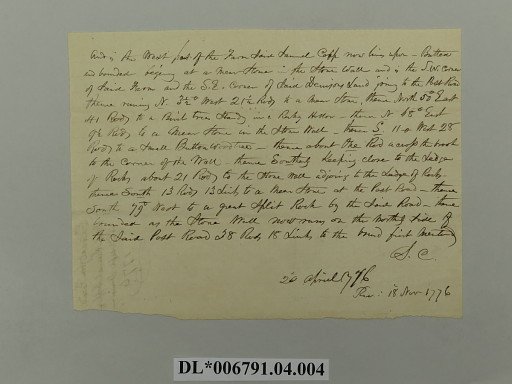 and is the West part of the Farm said Samuel Capp now lives upon – Butted
and bounded begins at a mear Stone – the Stone Wall and is the S.W. corner
of said Farm and the S.E. Corner of said Denisons Land joing to the Post Road
thence runing N. 3½° West 21½ Rods to a mear Stone, thence North 50° East
41 Rods to a Birch tree Standg in a Rocky Hollow – thence N 48° East
9½ Rods to a Mear Stone in the Stone Wall – thence S. 11° West 28
Rods to a Small Button Wood tree – thence about five Rod across the brook
to the Corner of the Wall – thence Southerly keeping close to the Ledge
of Rocks about 21 Rods to the Stone Wall adjoing to the Ledge of Rocks
thence South 13 Rods 13 Links to a Mear Stone at the Post Road – thence
South 79° West to a great Split Rock by the said Road – thence
bounded as the Stone Wall now runs on the North side of
the said Post Road 38 Rods 18 Links to the bound first Mentd
S. C.
26 April 1776
Rec: 18 Nov 1776
DL*006791.04.004